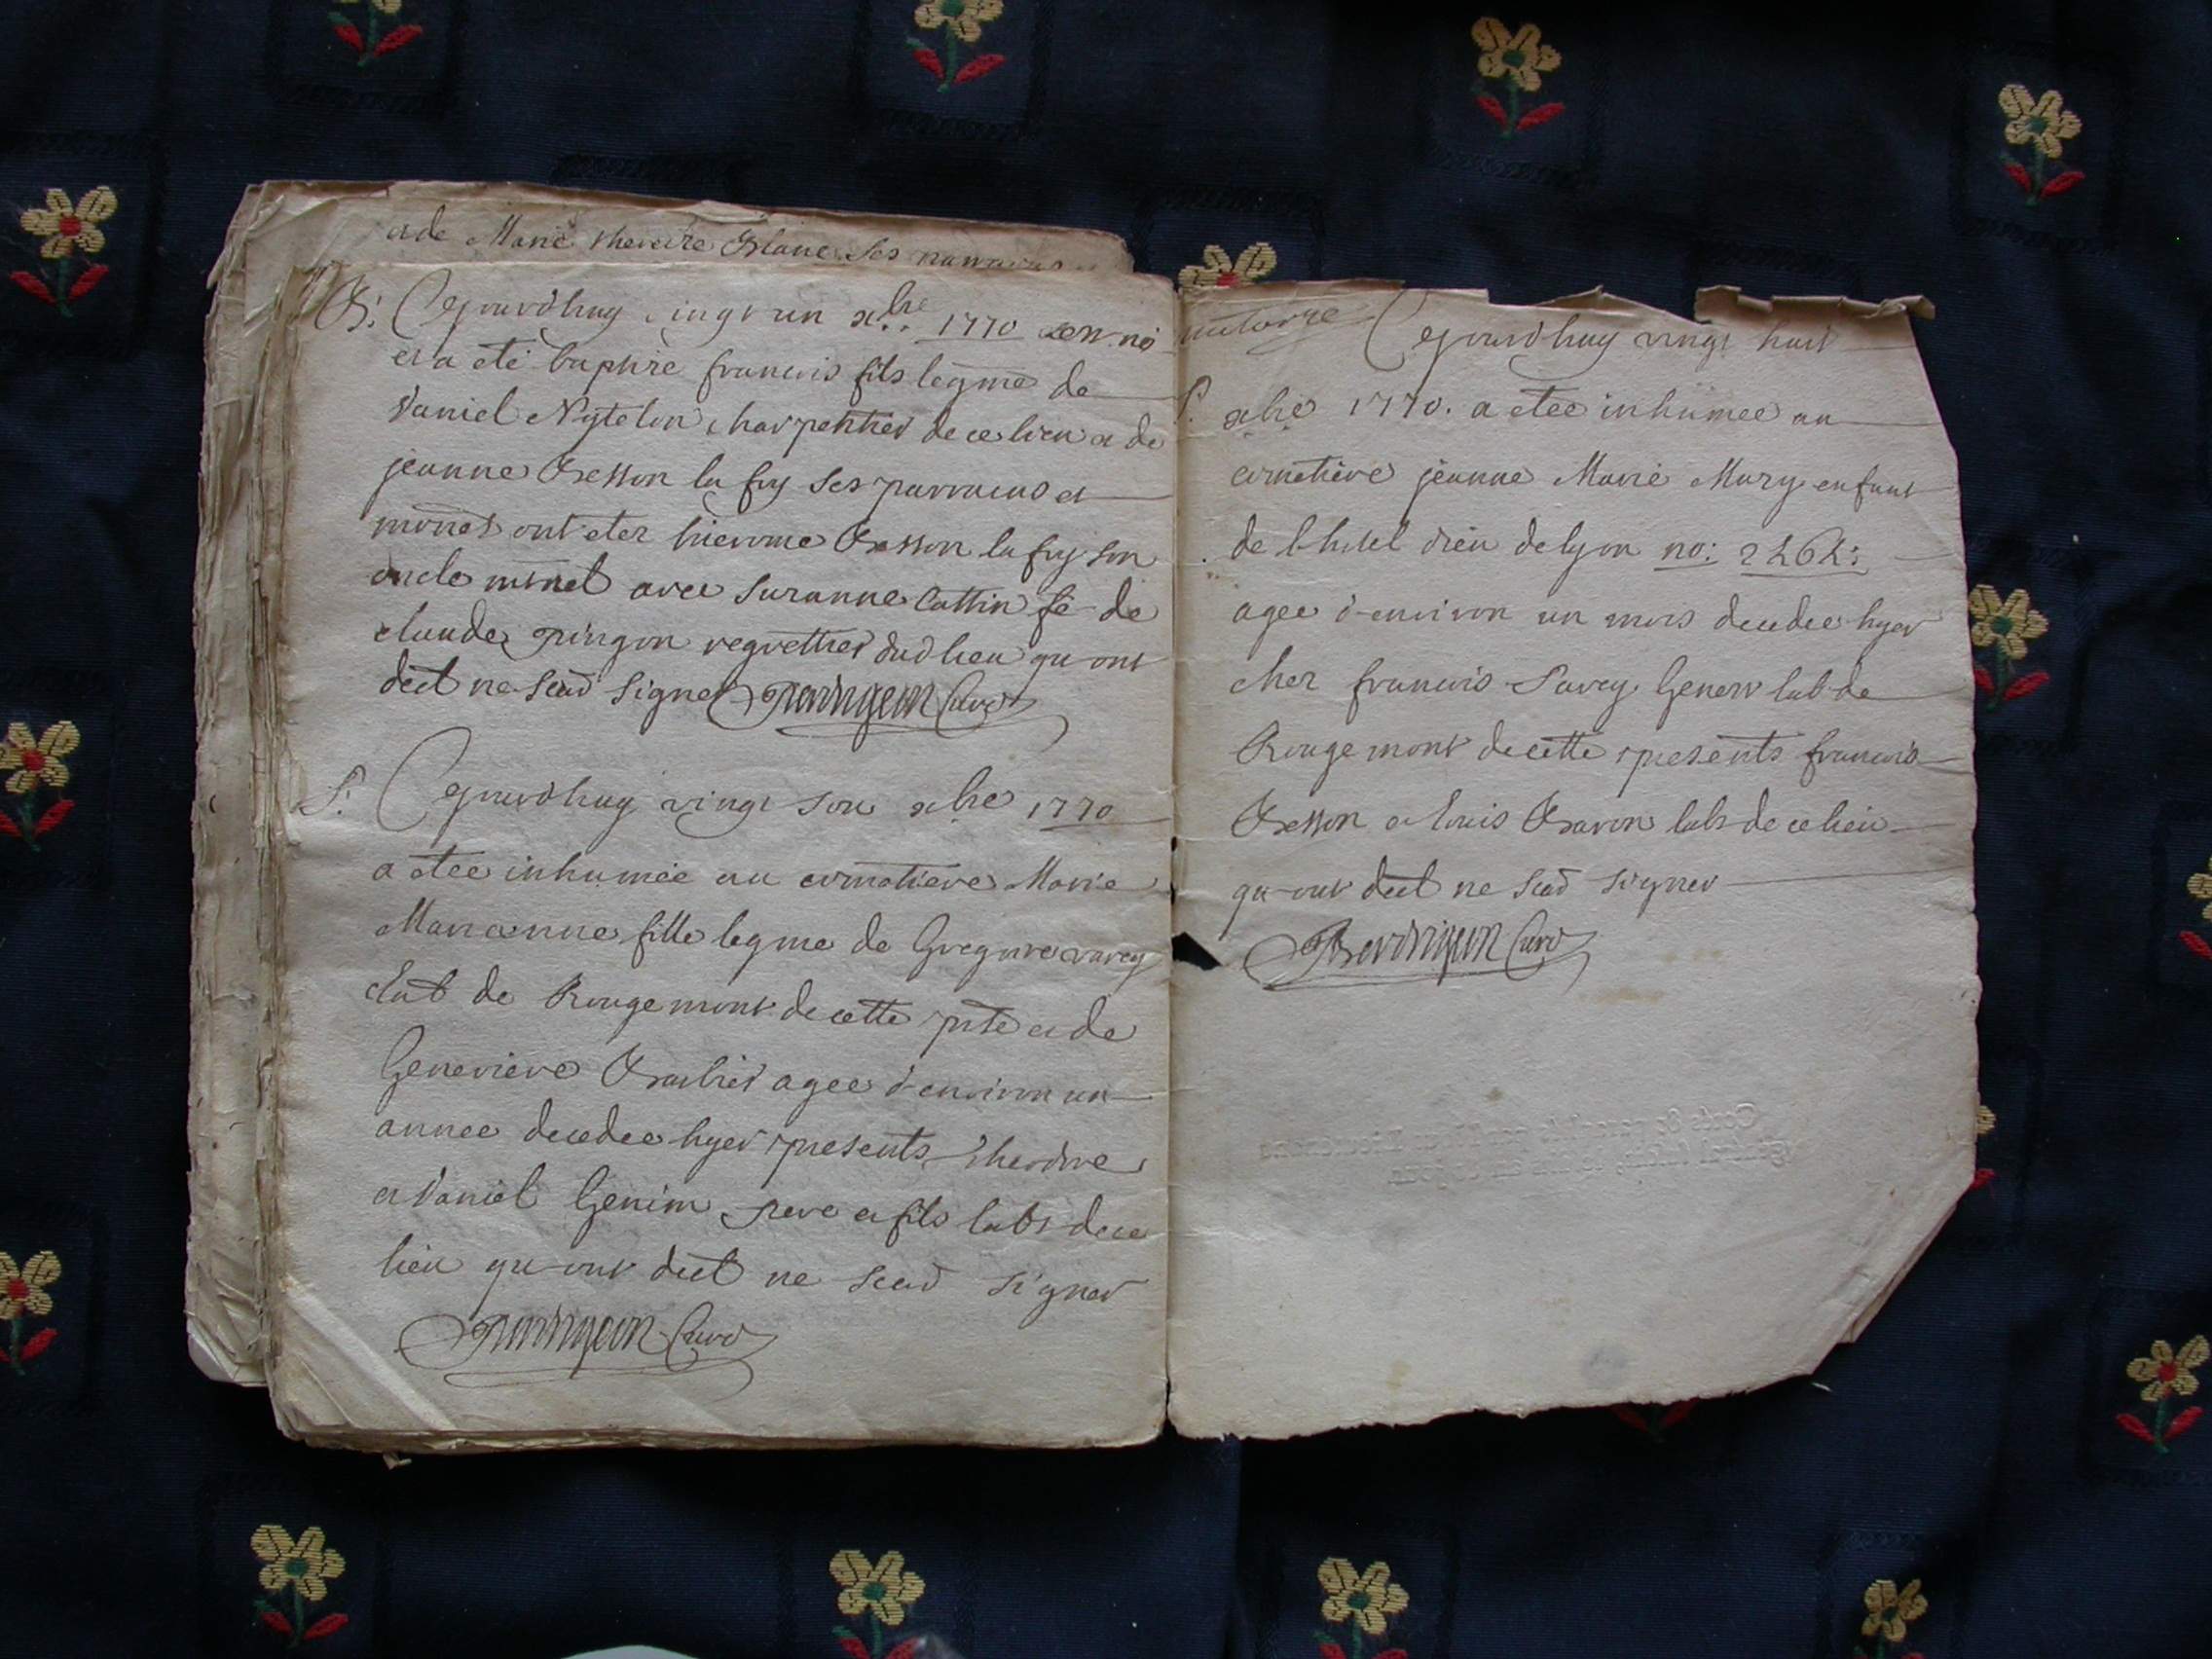 et de Marie thereze Blanc ses parrains
B: Cejourdhuy vingt un xbre 1770 est né
et a eté baptize francois fils legme de
Daniel Nytelon charpentier de ce lieu et de
jeanne Besson la foy ses parrains et
ont etez hierome Besson la foy son
oncle mrnel avec Suzanne Cattin fe de
claude pingon regrettier dud lieu qu-ont
dect ne scad signer Curé
S: Cejourdhuy vingt xbre 1770
a etee inhumée au cimetiere Marie
Marianne fille legme de Gregoire varey
lab de Rougemont de cette psse et de
Genevieve Barbier agee d'environ un
annee decedee hyer presents theodore
et Daniel Genin pere et fils labs de ce
lieu qu-ont dect ne scad signer
Curé
quatorze Cejourdhuy vingt huit
S: xbre 1770. a etee inhumee au
cimetiere jeanne Marie Mury enfant
de lhotel dieu de lyon no:
agee d-environ un mois decedee hyer
chez francois Savey Genery lab de
Rougemont de cette presents francois
Besson et louis Bavon labs de ce lieu
qu-ont dect ne scad signer
Curé